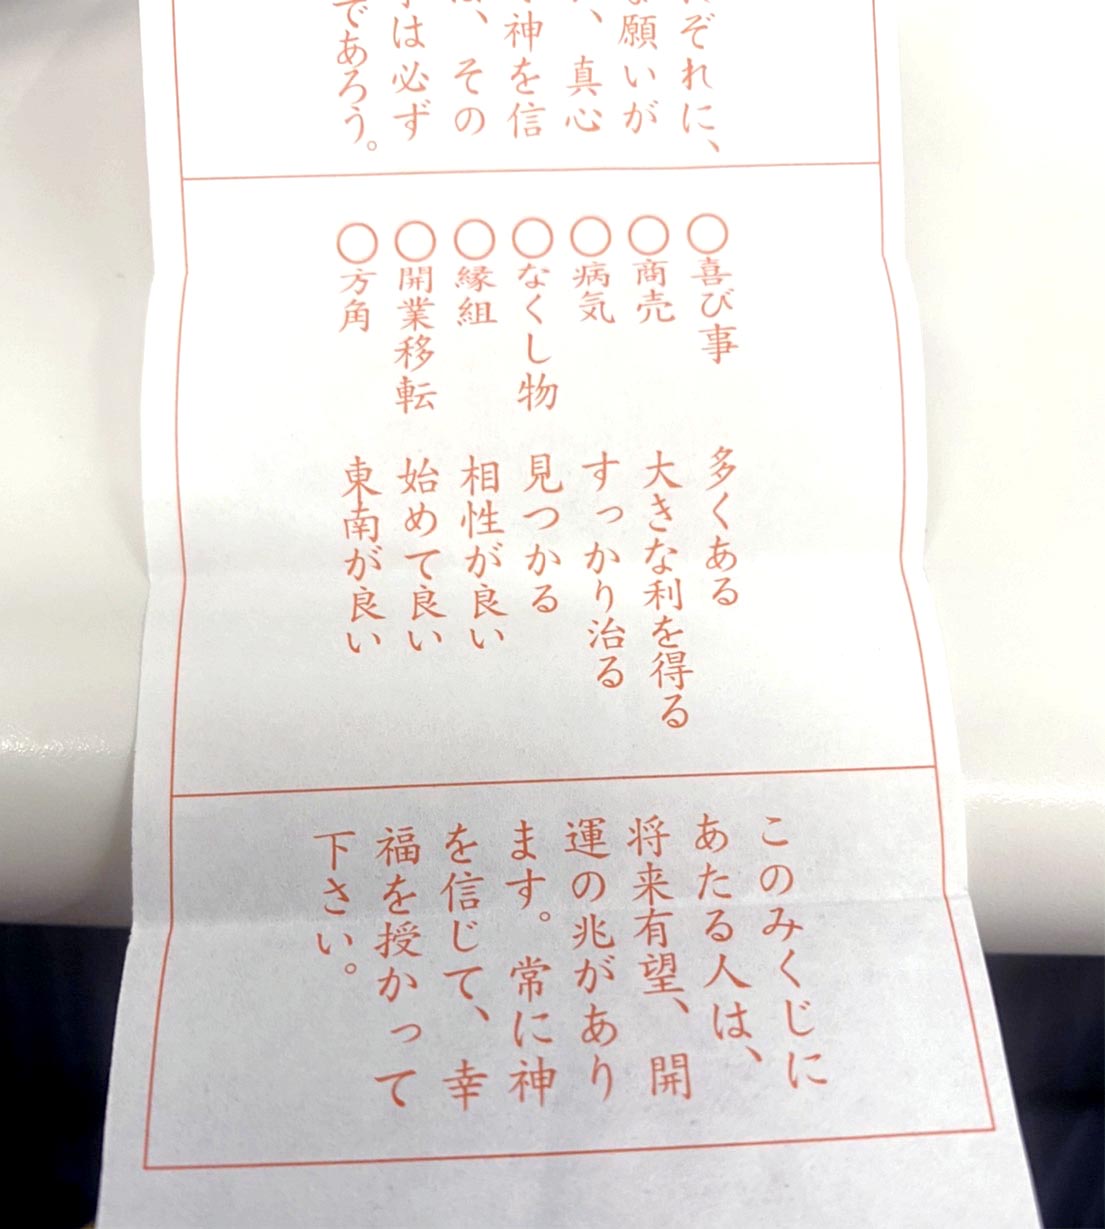 ぞれに、
願いが
、真心
神を信
、その
は必ず
であろう。
○喜び事 多くある
○商売 大きな利を得る
○病気 すっかり治る
○なくし物 見つかる
○縁組 相性が良い
○開業移転 始めて良い
○方角 東南が良い
このみくじに
あたる人は、
将来有望、開
運の兆があり
ます。常に神
を信じて、幸
福を授かって
下さい。